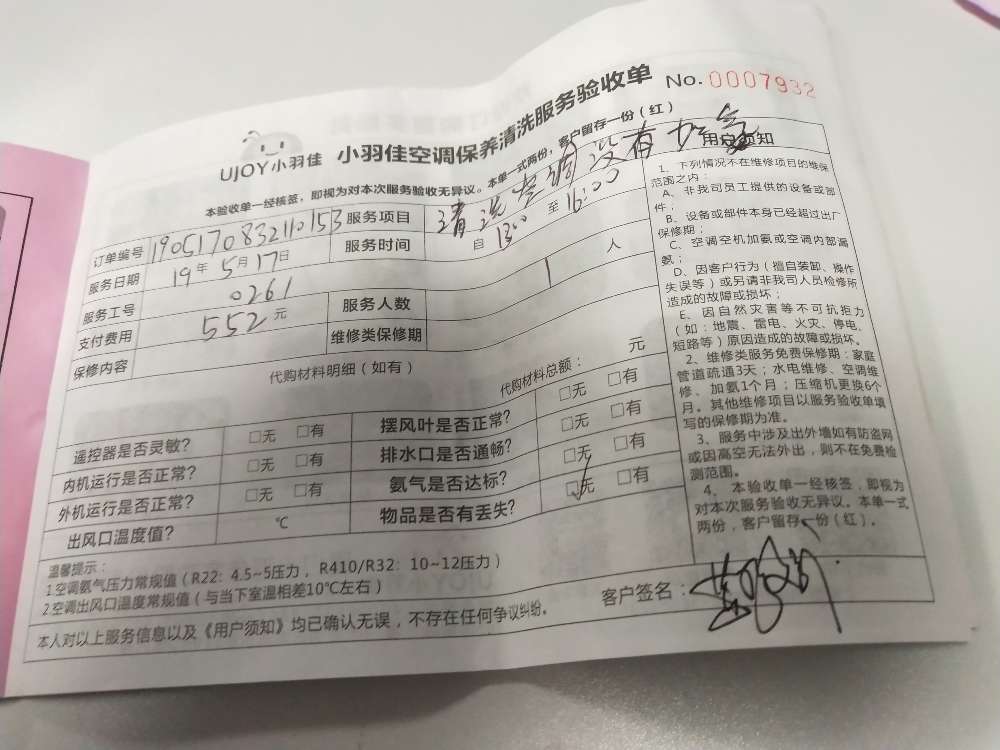 No. 0007932
UJOY小羽佳 小羽佳空调保养清洗服务验收单
本验收单一经核签，即视为对本次服务验收无异议。本单一式两份，客户留存一份（红）
订单编号 1905170832110153 服务项目 清洗空调没有加氨
服务日期 19年5月17日 服务时间 自 13:00 至 16:00
服务工号 0261 服务人数 1 人
支付费用 552元 维修类保修期
保修内容
代购材料明细（如有） 代购材料总额： 元
遥控器是否灵敏? □无 □有 摆风叶是否正常? □无 □有
内机运行是否正常? □无 □有 排水口是否通畅? □无 □有
外机运行是否正常? □无 □有 氨气是否达标? □无 □有
出风口温度值? ℃ 物品是否有丢失? □无 □有
温馨提示：
1.空调氨气压力常规值（R22：4.5~5压力，R410/R32：10~12压力）
2.空调出风口温度常规值（与当下室温相差10℃左右）
客户签名：
本人对以上服务信息以及《用户须知》均已确认无误，不存在任何争议纠纷。
用户须知
1、下列情况不在维修项目的维保
范围之内：
A、非我司员工提供的设备或部
件；
B、设备或部件本身已经超过出厂
保修期；
C、空调空机加氨或空调内部漏
氨；
D、因客户行为（擅自装卸、操作
失误等）或另请非我司人员检修所
造成的故障或损坏；
E、因自然灾害等不可抗拒力
（如：地震、雷电、火灾、停电、
短路等）原因造成的故障或损坏。
2、维修类服务免费保修期：家庭
管道疏通3天；水电维修、空调维
修、加氨1个月；压缩机更换6个
月。其他维修项目以服务验收单填
写的保修期为准。
3、服务中涉及出外墙如有防盗网
或因高空无法外出，则不在免费检
测范围。
4、本验收单一经核签，即视为
对本次服务验收无异议。本单一式
两份，客户留存一份（红）。